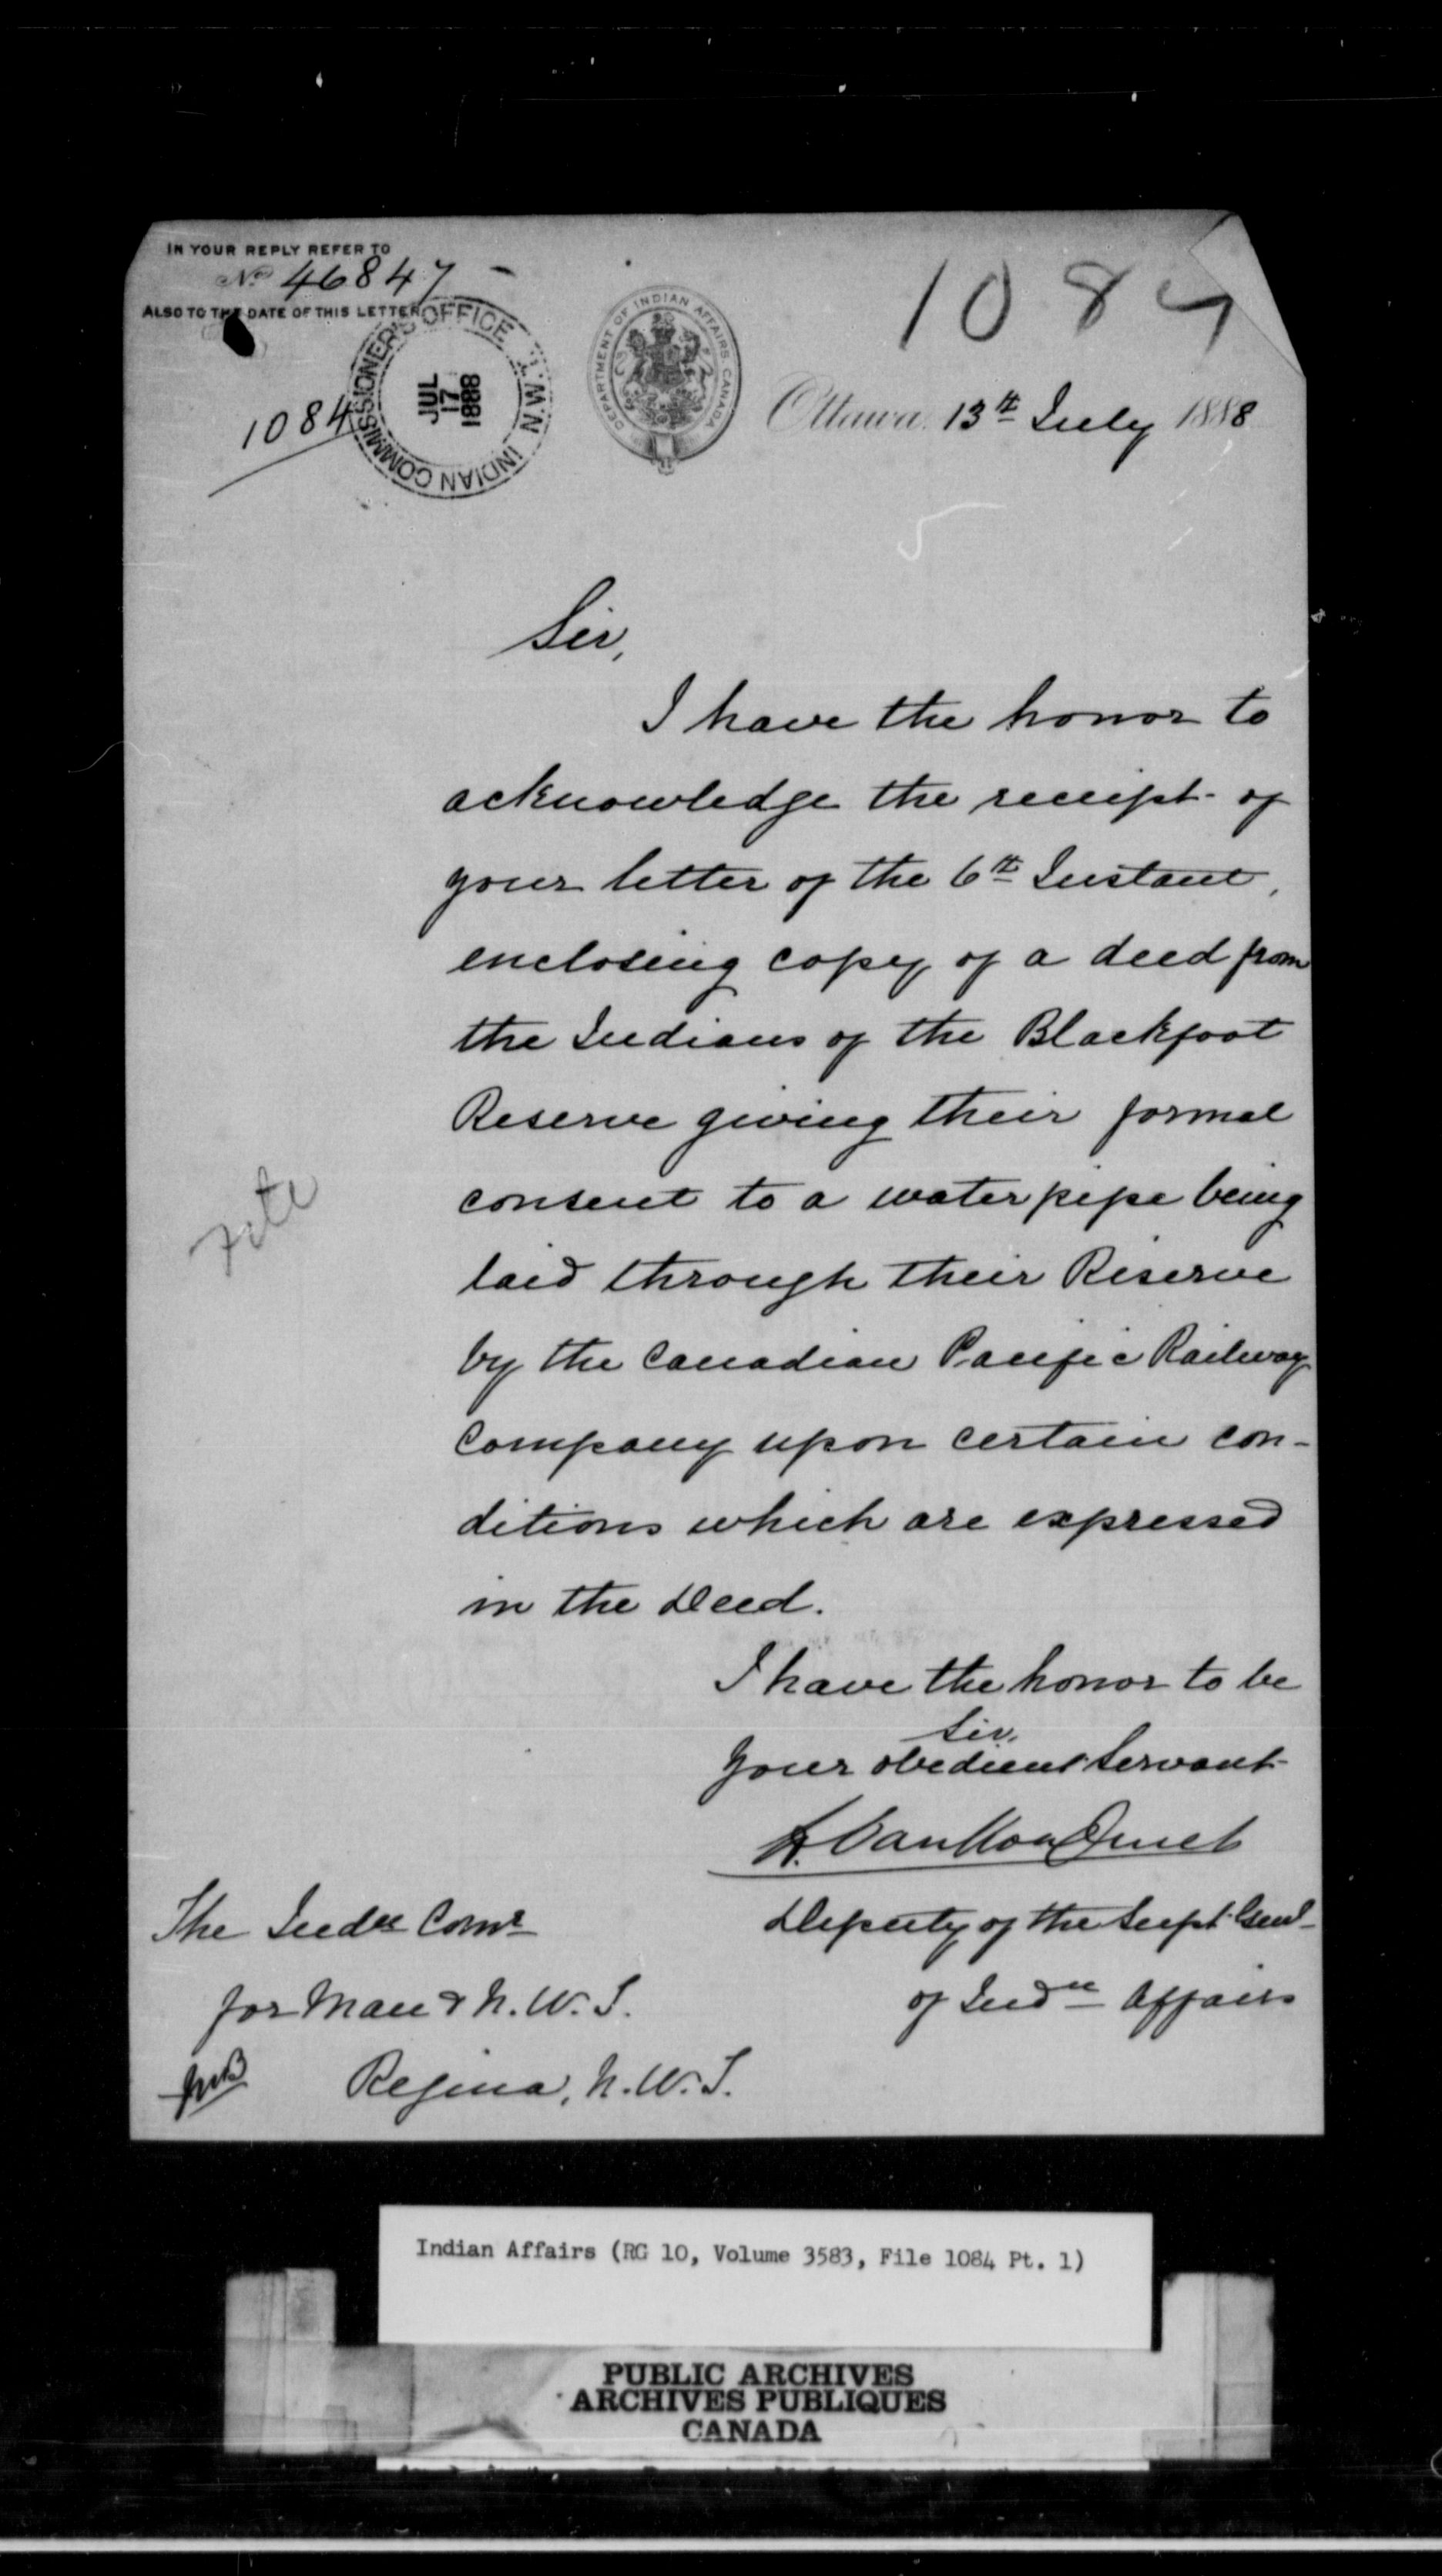 IN YOUR REPLY REFER TO
No 46847
ALSO TO THE DATE OF THIS LETTER
INDIAN COMMISSIONER'S OFFICE N.W.T.
JUL
17
1888
DEPARTMENT OF INDIAN AFFAIRS. CANADA
1084
1084
Ottawa, 13th July 1888
Sir,
I have the honor to
acknowledge the receipt of
your letter of the 6th Instant,
enclosing copy of a deed from
the Indians of the Blackfoot
Reserve giving their formal
consent to a water pipe being
laid through their Reserve
by the Canadian Pacific Railway
Company upon certain con-
ditions which are expressed
in the Deed.
I have the honor to be
Sir,
Your obedient Servant
L. VanKoughnet
Deputy of the Supt. Genl
of Indn Affairs
The Indn Comr
for Man & N.W.T.
Regina, N.W.T.
Indian Affairs (RG 10, Volume 3583, File 1084 Pt. 1)
PUBLIC ARCHIVES
ARCHIVES PUBLIQUES
CANADA